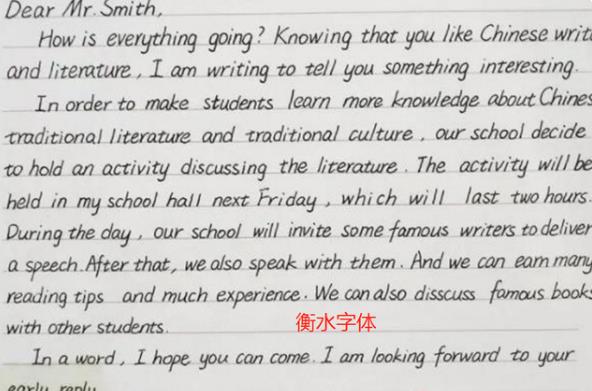 Dear Mr. Smith,
How is everything going? Knowing that you like Chinese writ
and literature, I am writing to tell you something interesting.
In order to make students learn more knowledge about Chines
traditional literature and traditional culture, our school decide
to hold an activity discussing the literature. The activity will be
held in my school hall next Friday, which will last two hours.
During the day, our school will invite some famous writers to deliver
a speech. After that, we also speak with them. And we can earn many
reading tips and much experience. We can also disscuss famous books
with other students.
衡水字体
In a word, I hope you can come. I am looking forward to your
early reply